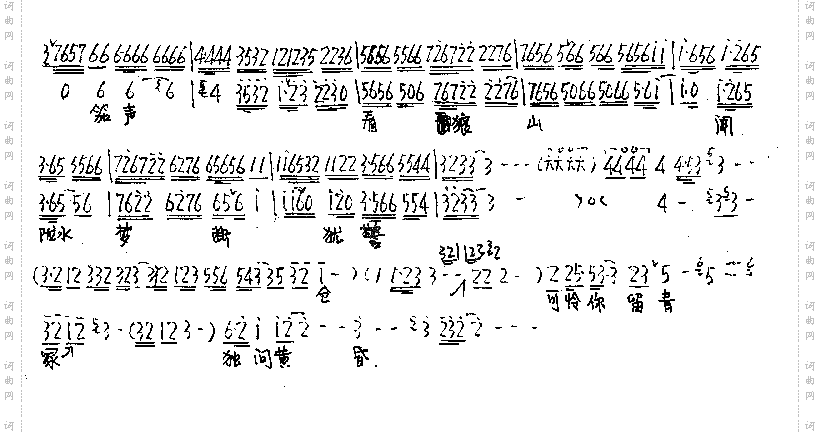 3 7657 66 6666 6666 | 4·444 3532 121235 2236 | 5656 5566 726722 2276 | 7656 566 566 565611 | 1·656 1·265
0 6 6 3 6 | 4 3532 1·23 2230 | 5656 506 76722 2276 | 7656 5066 5066 561 | 1·0 1·265
笳声 看 狼 山 闻
3·65 3566 | 726722 6276 65656 11 | 116532 1122 3·566 5544 | 3233 3 - - - ( 大大 大大 ) 4444 4 4·53 3 - -
3·65 56 | 7622 6276 656 1 | 1160 120 3·566 554 | 3233 3 - 4 - 33 -
陇水 梦 断 犹
321123 32
(3·212 332 323 32 123 556 543 35 32 1 - ) (1 1·23 3 - - 22 2 - ) 2 25·53·3 23 5 - 5
仓
可怜你 留青
3212 3 - (32 12 3 - ) 6·2 1 12 2 - - 3 - - 3 232 2 - - -
冢 独向黄 昏
词曲网